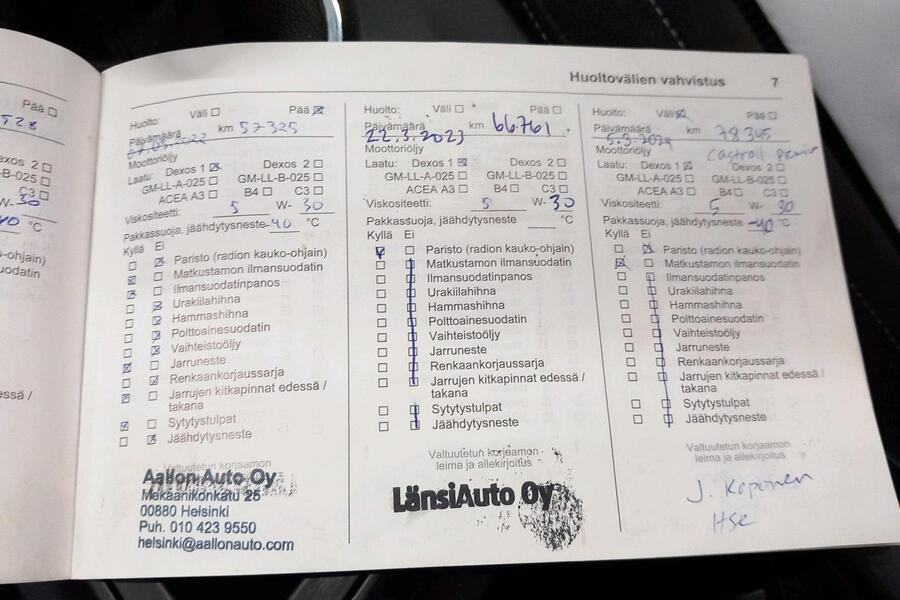 Huoltovälien vahvistus 7
Pää
528
Dexos 2
B-025
C3
W- 30
40 °C
o-ohjain)
uodatin
essä /
Huolto: Väli Pää
Päivämäärä km 57325
Moottoriöljy
Laatu: Dexos 1 Dexos 2
GM-LL-A-025 GM-LL-B-025
ACEA A3 B4 C3
Viskositeetti: 5 W- 30
Pakkassuoja, jäähdytysneste -40 °C
Kyllä Ei
Paristo (radion kauko-ohjain)
Matkustamon ilmansuodatin
Ilmansuodatinpanos
Urakiilahihna
Hammashihna
Polttoainesuodatin
Vaihteistoöljy
Jarruneste
Renkaankorjaussarja
Jarrujen kitkapinnat edessä /
takana
Sytytystulpat
Jäähdytysneste
Valtuutetun korjaamon
Aallon Auto Oy
Mekaanikonkatu 25
00880 Helsinki
Puh. 010 423 9550
helsinki@aallonauto.com
Huolto: Väli Pää
Päivämäärä 22.3.2023 km 66.761
Moottoriöljy
Laatu: Dexos 1 Dexos 2
GM-LL-A-025 GM-LL-B-025
ACEA A3 B4 C3
Viskositeetti: 5 W- 30
Pakkassuoja, jäähdytysneste °C
Kyllä Ei
Paristo (radion kauko-ohjain)
Matkustamon ilmansuodatin
Ilmansuodatinpanos
Urakiilahihna
Hammashihna
Polttoainesuodatin
Vaihteistoöljy
Jarruneste
Renkaankorjaussarja
Jarrujen kitkapinnat edessä /
takana
Sytytystulpat
Jäähdytysneste
Valtuutetun korjaamon
leima ja allekirjoitus
LänsiAuto Oy
Huolto: Väli Pää
Päivämäärä 5.3.2024 km 78345
Moottoriöljy Castroll
Laatu: Dexos 1 Dexos 2
GM-LL-A-025 GM-LL-B-025
ACEA A3 B4 C3
Viskositeetti: 5 W- 30
Pakkassuoja, jäähdytysneste -40 °C
Kyllä Ei
Paristo (radion kauko-ohjain)
Matkustamon ilmansuodatin
Ilmansuodatinpanos
Urakiilahihna
Hammashihna
Polttoainesuodatin
Vaihteistoöljy
Jarruneste
Renkaankorjaussarja
Jarrujen kitkapinnat edessä /
takana
Sytytystulpat
Jäähdytysneste
Valtuutetun korjaamon
leima ja allekirjoitus
J. Koponen
HSE